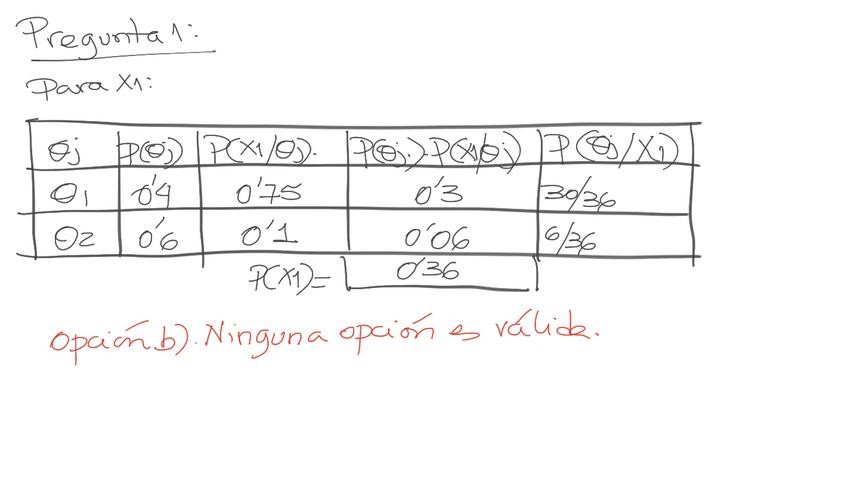 Pregunta 1:
Para X1:
θj P(θj) P(X1/θj). P(θj).P(X1/θj) P(θj/X1)
θ1 0'4 0'75 0'3 30/36
θ2 0'6 0'1 0'06 6/36
P(X1)= 0'36
Opción b). Ninguna opción es válida.